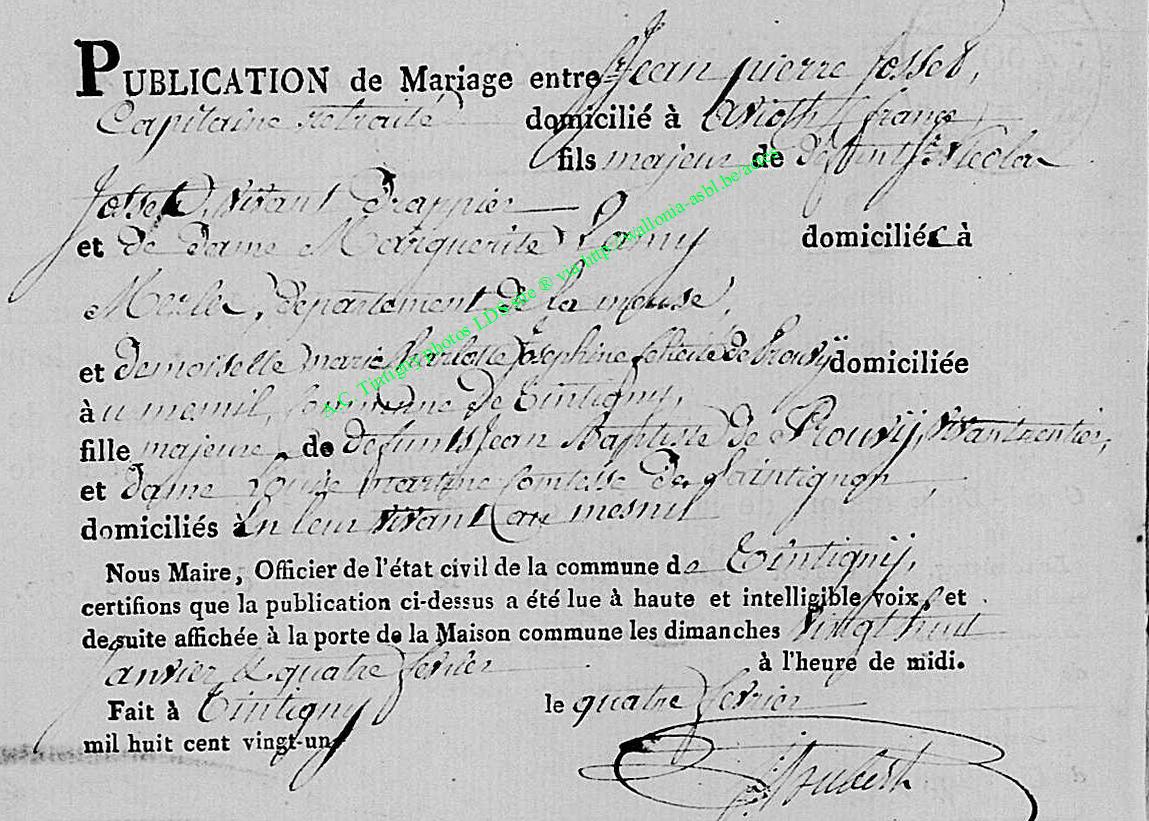 PUBLICATION de Mariage entre Sr. Jean pierre Josset,
Capitaine retraité domicilié à avioth (france)
fils majeur de défunt Sr. Nicolas
Josset, vivant Drappier
et de dame Marguerite Lamy domiciliés à
Merle, département de la meuse,
et demoiselle marie Charlotte Josephine felicité de Prouvÿ domiciliée
à u mesnil, Commune de Tintigny,
fille majeure de defunts Jean Baptiste de Prouvÿ, vivant rentier,
et dame Louise martine Comtesse de
domiciliés à En leur vivant au mesnil
Nous Maire, Officier de l'état civil de la commune de Tintigny,
certifions que la publication ci-dessus a été lue à haute et intelligible voix, et
de suite affichée à la porte de la Maison commune les dimanches vingt huit
Janvier & quatre fevrier à l'heure de midi.
Fait à Tintigny le quatre fevrier
mil huit cent vingt-un
A.C. Tintigny photos LDS site ® via http://wallonia-asbl.be/actes